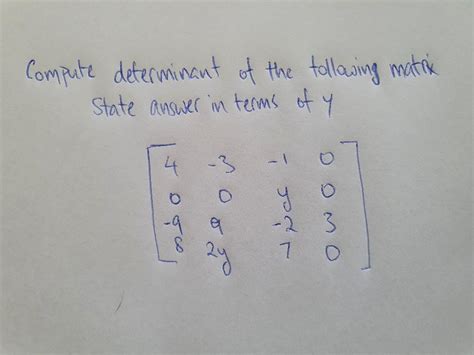 Compute determinant of the following matrix
State answer in terms of y
4 -3 -1 0
0 0 y 0
-9 9 -2 3
8 2y 7 0